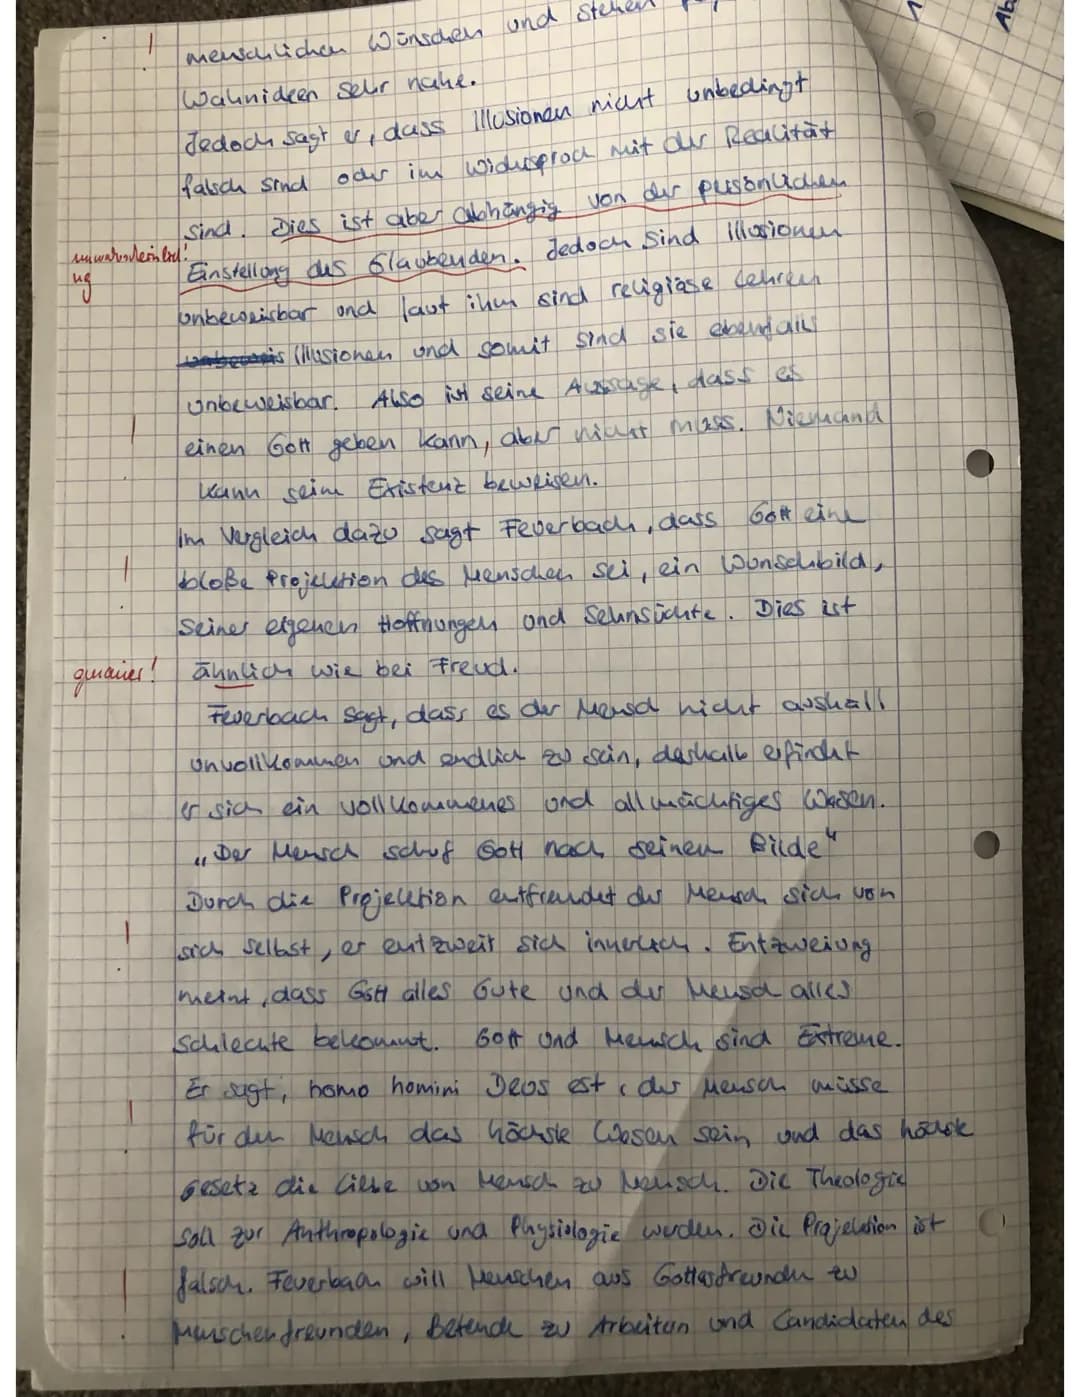 menschlichen Wünschen und stehen
Wahnideen sehr nahe.
Jedoch sagt er, dass Illusionen nicht unbedingt
falsch sind oder im Widerspruch mit der Realität
sind. Dies ist aber abhängig von der persönlichen
Einstellung des Glaubenden. Jedoch sind Illusionen
unbeweisbar und laut ihm sind religiöse Lehren
Illusionen und somit sind sie ebenfalls
unbeweisbar. Also ist seine Aussage, dass es
einen Gott geben kann, aber nicht muss. Niemand
kann seine Existenz beweisen.
Im Vergleich dazu sagt Feuerbach, dass Gott eine
bloße Projektion des Menschen sei, ein Wunschbild,
seiner eigenen Hoffnungen und Sehnsüchte. Dies ist
genauer!
ähnlich wie bei Freud.
Feuerbach sagt, dass es der Mensch nicht aushält
unvollkommen und endlich zu sein, deshalb erfindet
er sich ein vollkommenes und allmächtiges Wesen.
„Der Mensch schuf Gott nach seinem Bilde“
Durch die Projektion entfremdet der Mensch sich von
sich selbst, er entzweit sich innerlich. Entzweiung
meint, dass Gott alles Gute und der Mensch alles
Schlechte bekommt. Gott und Mensch sind Extreme.
Er sagt, homo homini Deus est, der Mensch müsse
für den Mensch das höchste Wesen sein und das höchste
Gesetz die Liebe von Mensch zu Mensch. Die Theologie
soll zur Anthropologie und Physiologie werden. Die Projektion ist
falsch. Feuerbach will Menschen aus Gottesfreunden zu
Menschenfreunden, Betende zu Arbeitern und Candidaten des